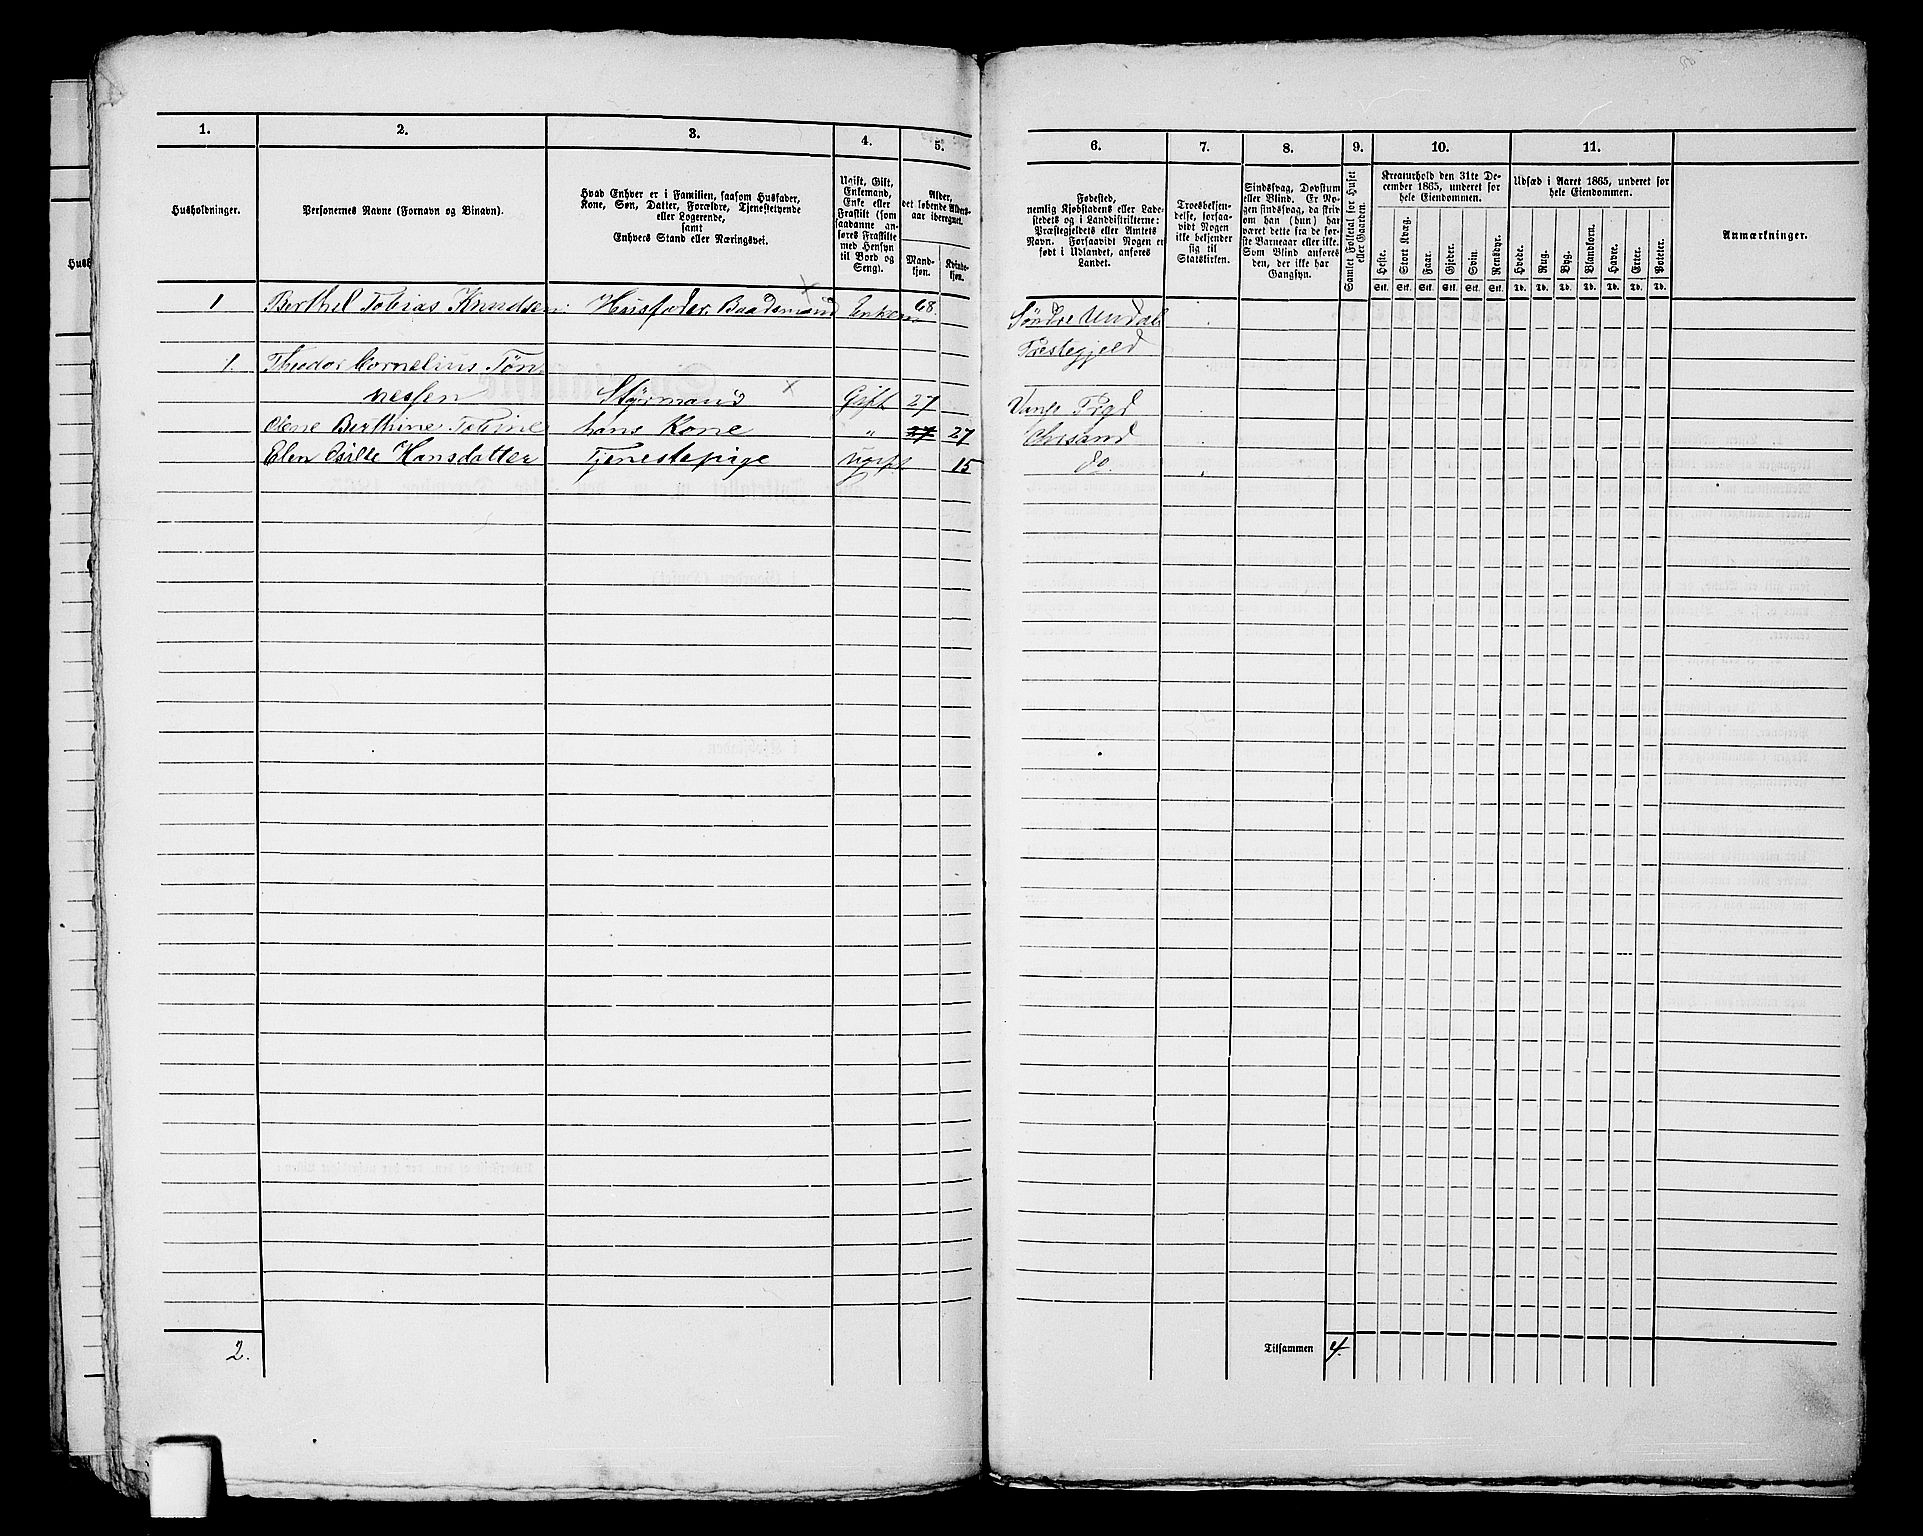 1. 2. 3. 4. 5.
Husholdninger.
Personernes Navne (Fornavn og Binavn).
Hvad Enhver er i Familien, saasom Husfader,
Kone, Søn, Datter, Forældre, Tjenestetyende
eller Logerende,
samt
Enhvers Stand eller Næringsvei.
Ugift, Gift,
Enkemand,
Enke eller
Fraskilt (som
saadanne an-
føres Fraskilte
med Hensyn
til Bord og
Seng).
Alder,
det løbende Alders-
aar iberegnet.
Mand-
kjøn.
Kvinde-
kjøn.
1 Berthel Tobias Knudsen Huusfader. Baadsmand Enkem 68.
1. Theodor Cornelius Tøn
nessen Styrmand Gift 27
Olene Berthine Tobine hans Kone " 27 27
Elen Tjenestepige ugift 15
Hansdatter
2.
6. 7. 8. 9. 10. 11.
Fødested,
nemlig Kjøbstadens eller Lade-
stedets og i Landdistrikterne:
Præstegjeldets eller Amtets
Navn. Forsaavidt Nogen er
født i Udlandet, anføres
Landet.
Troesbekjen-
delse, forsaa-
vidt Nogen
ikke bekjender
sig til
Statskirken.
Sindssvag, Døvstum
eller Blind. Er No-
gen sindssvag, da skriv
om han (hun) har
været dette fra de før-
ste Barneaar eller ikke.
Som Blind anføres
den, der ikke har
Gangsyn.
Samlet Folketal for Huset
eller Gaarden.
Kreaturhold den 31te De-
cember 1865, underet for
hele Eiendommen.
Heste. Stort Kvæg. Faar. Gjeder. Svin. Rensdyr.
Stk. Stk. Stk. Stk. Stk. Stk.
Udsæd i Aaret 1865, underet for
hele Eiendommen.
Hvede. Rug. Byg. Blandkorn. Havre. Erter. Poteter.
Td. Td. Td. Td. Td. Td. Td.
Anmærkninger.
Søndre Undal
Prestegjeld
Chrsand
do.
Tilsammen 4.